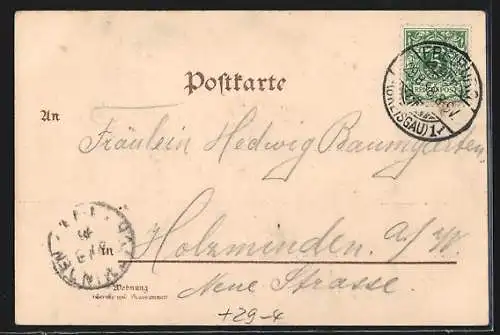 Postkarte
REICHSPOST
FREIBURG
(BREISGAU) 1
An
Fräulein Hedwig Baumgarten,
HOLZMINDEN
in
Holzminden. a/W.
Wohnung
Neue Strasse.
+29-4